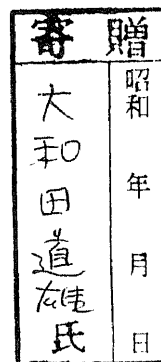 寄贈
昭和 年 月 日
大和田道雄氏